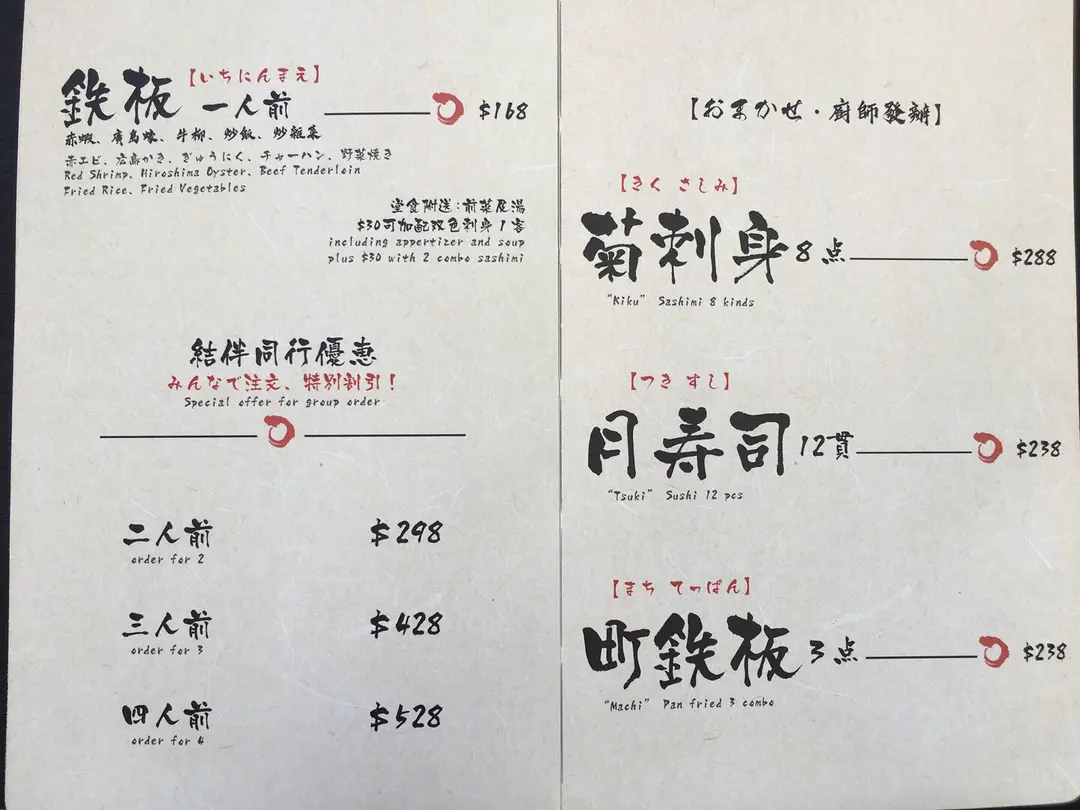 鉄板【いちにんまえ】
一人前 $168
赤蝦、廣島蠔、牛柳、炒飯、炒雜菜
赤エビ、広島かき、ぎゅうにく、チャーハン、野菜焼き
Red Shrimp、Hiroshima Oyster、Beef Tenderloin
Fried Rice、Fried Vegetables
堂食附送：前菜及湯
$30可加配双色刺身1客
including appertizer and soup
plus $30 with 2 combo sashimi
結伴同行優惠
みんなで注文、特別割引！
Special offer for group order
二人前 $298
order for 2
三人前 $428
order for 3
四人前 $528
order for 4
【おまかせ・廚師發辦】
【きく さしみ】
菊刺身 8点 $288
"Kiku" Sashimi 8 kinds
【つき すし】
月寿司 12貫 $238
"Tsuki" Sushi 12 pcs
【まち てっぱん】
町鉄板 3点 $238
"Machi" Pan fried 3 combo